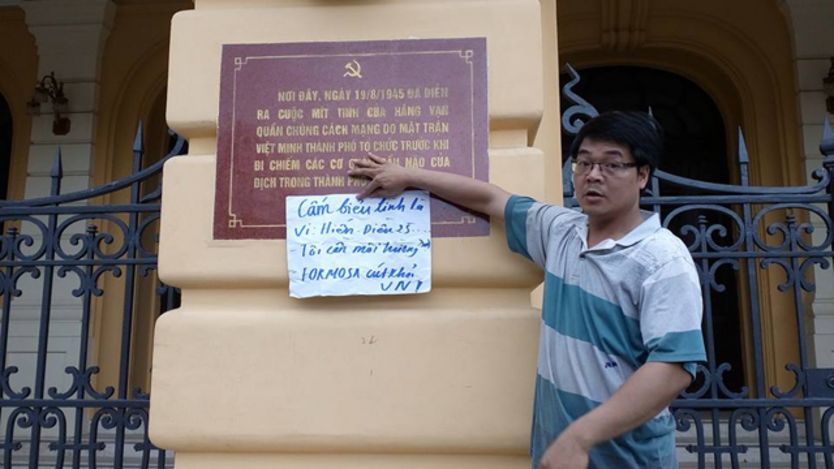 NƠI ĐÂY, NGÀY 19/8/1945 ĐÃ DIỄN
RA CUỘC MÍT TINH CỦA HÀNG VẠN
QUẦN CHÚNG CÁCH MẠNG DO MẶT TRẬN
VIỆT MINH THÀNH PHỐ TỔ CHỨC TRƯỚC KHI
ĐI CHIẾM CÁC CƠ NÃO CỦA
ĐỊCH TRONG THÀNH PHỐ
Cấm biểu tình là
Vi Hiến. Điều 25....
Tôi cần môi trường
FORMOSA cút khỏi
VN!